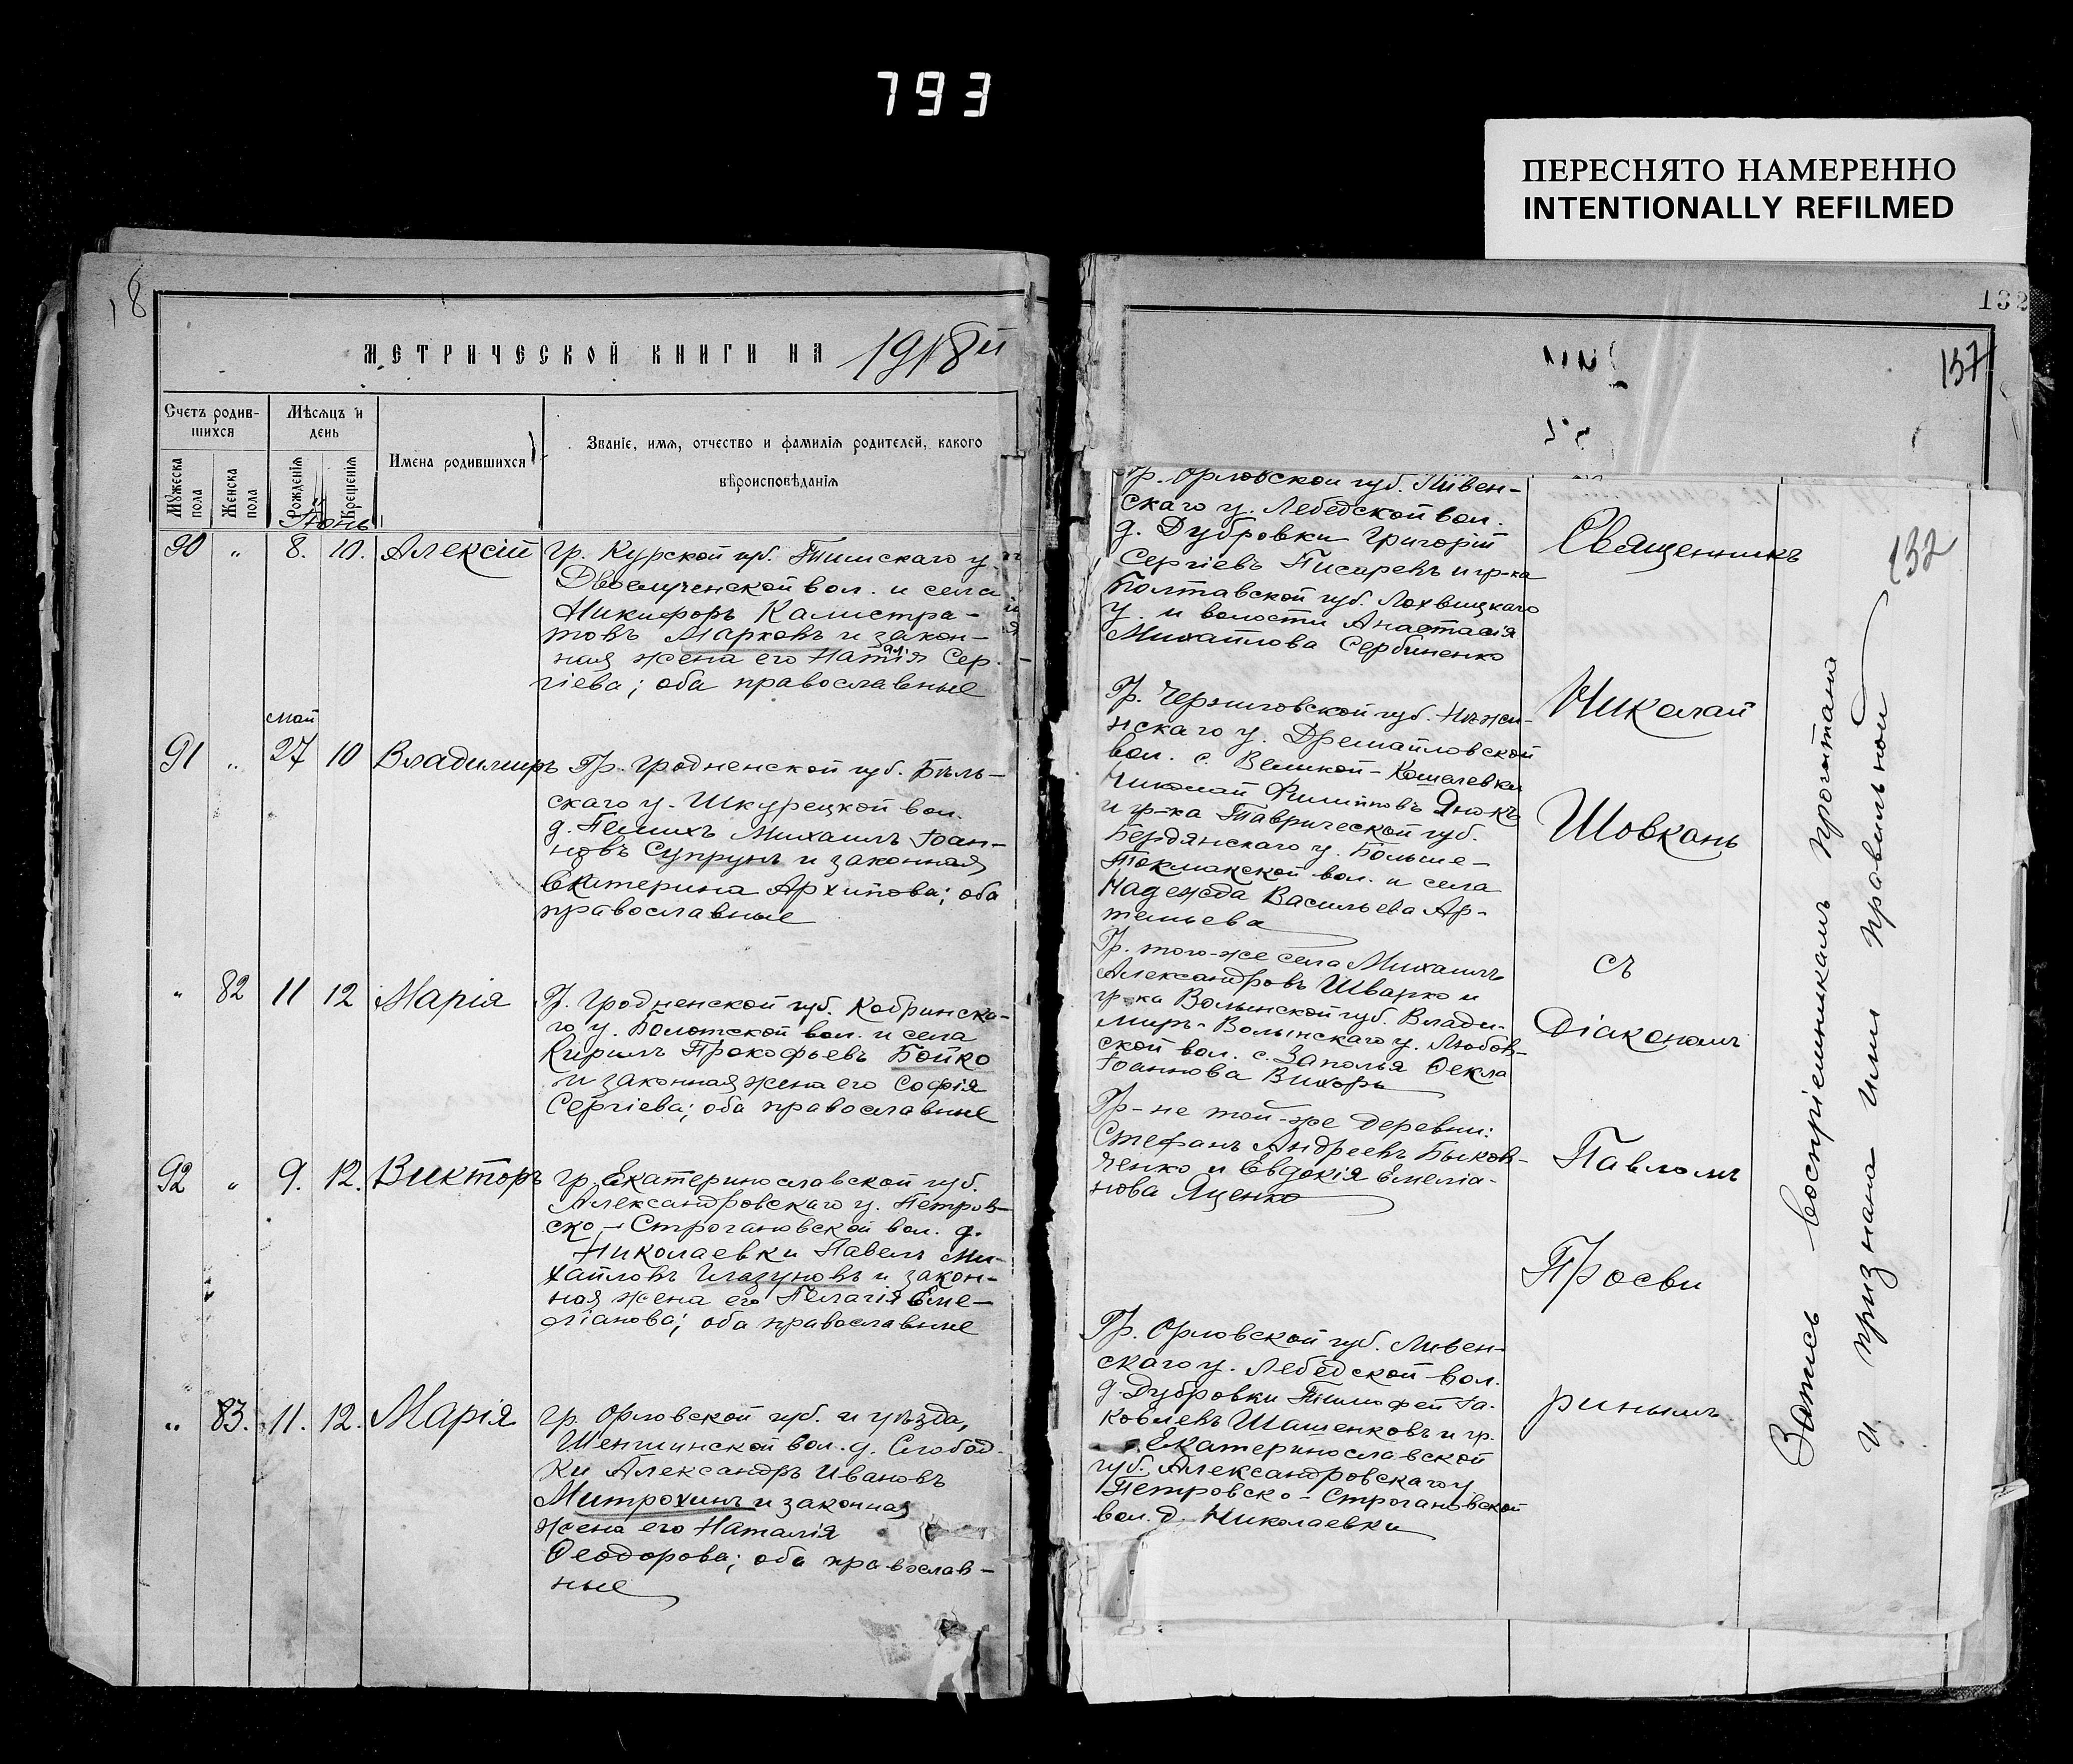 793
ПЕРЕСНЯТО НАМЕРЕННО
INTENTIONALLY REFILMED
18
МЕТРИЧЕСКОЙ КНИГИ НА 1918й
Счетъ родив-
шихся
Мѣсяцъ и
день
Имена родившихся
Званіе, имя, отчество и фамилія родителей, какого
вѣроисповѣданія
Мужеска пола
Женска пола
Рожденія
Крещенія
Іюнь
90 " 8. 10. Алексій
гр. Курской губ. Тимскаго у.
Двоелученской вол. и села
Никифоръ Калистра-
товъ Марковъ и закон-
ная жена его Наталія Сер-
гіева; оба православные
май
91 " 27 10 Владимиръ
Гр. Гродненской губ. Бѣль-
скаго у. Шкурецкой вол.
Михаилъ Іоан-
новъ Супрунъ и законная
Екатерина Архипова; оба
православные
" 82 11 12 Марія
Гр. Гродненской губ. Кобринска-
го у. Болотской вол. и села
Кириллъ Прокофьевъ Бойко
и законная жена его Софія
Сергіева; оба православные
92 " 9. 12. Викторъ
гр. Екатеринославской губ.
Александровскаго у. Петров-
ско-Строгановской вол. д.
Николаевки Павелъ Ми-
хайловъ Глазуновъ и закон-
ная жена его Пелагія Еме-
ліанова; оба православные
" 83. 11. 12. Марія
гр. Орловской губ. и уѣзда,
Шеншинской вол. д. Слобод-
ки Александръ Ивановъ
Митрохинъ и законная
жена его Наталія
Ѳеодорова; оба православ-
ные
132
137
132
Гр. Орловской губ. Ливен-
скаго у. Лебедской вол.
д. Дубровки Григорій
Сергіевъ Писаревъ и гр-ка
Полтавской губ. Лохвицкаго
у. и волости Анастасія
Михайлова Сербиненко
Гр. Черниговской губ. Нѣжи-
нскаго у. Дремайловской
вол. с. Великой-Кошелевки
Николай Филипповъ Янокъ
и гр-ка Таврической губ.
Бердянскаго у. Больше-
Токмакской вол. и села
Надежда Васильева Ар-
темьева
Гр. того-же села Михаилъ
Александровъ Шварко и
гр-ка Волынской губ. Влади-
миръ-Волынскаго у. Любов-
ской вол. с. Заполья Ѳекла
Іоаннова Вихоръ
Гр-не той-же деревни:
Стефанъ Андреевъ Быков-
ченко и Евдокія Емеліа-
нова Яценко
Гр. Орловской губ. Ливен-
скаго у. Лебедской вол.
д. Дубровки Тимофей Іа-
ковлевъ Шашенковъ и гр.
Екатеринославской
губ. Александровскаго у
Петровско-Строгановской
вол. д. Николаевки
Священникъ
Николай
Шовкань
съ
Діакономъ
Павломъ
Просви
ринымъ
Запись воспріемникамъ прочитана
и признана ими правильной